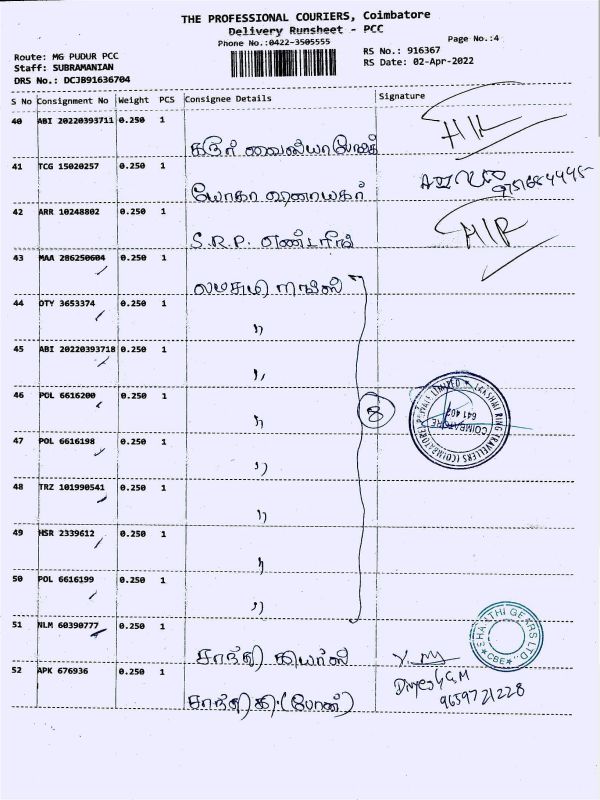 THE PROFESSIONAL COURIERS, Coimbatore
Delivery Runsheet - PCC
Phone No.:0422-3505555
Page No.:4
Route: MG PUDUR PCC
Staff: SUBRAMANIAN
DRS No.: DCJB91636704
RS No.: 916367
RS Date: 02-Apr-2022
S No Consignment No Weight PCS Consignee Details Signature
40 ABI 20220393711 0.250 1
41 TCG 15020257 0.250 1
யோகா விநாயகர்
42 ARR 10248802 0.250 1
S.R.P.
43 MAA 286250604 0.250 1
லட்சுமி ரிங்ஸ்
44 OTY 3653374 0.250 1
"
45 ABI 20220393718 0.250 1
"
46 POL 6616200 0.250 1
"
8
LAKSHMI RING TRAVELLERS (COIMBATORE) PRIVATE LIMITED
COIMBATORE
641 402
47 POL 6616198 0.250 1
"
48 TRZ 101990541 0.250 1
"
49 HSR 2339612 0.250 1
"
50 POL 6616199 0.250 1
"
51 NLM 60390777 0.250 1
சாந்தி கியர்ஸ்
SHANTHI GEARS LTD.,
CBE
52 APK 676936 0.250 1
சாந்தி கி.(போன்)
9659721228